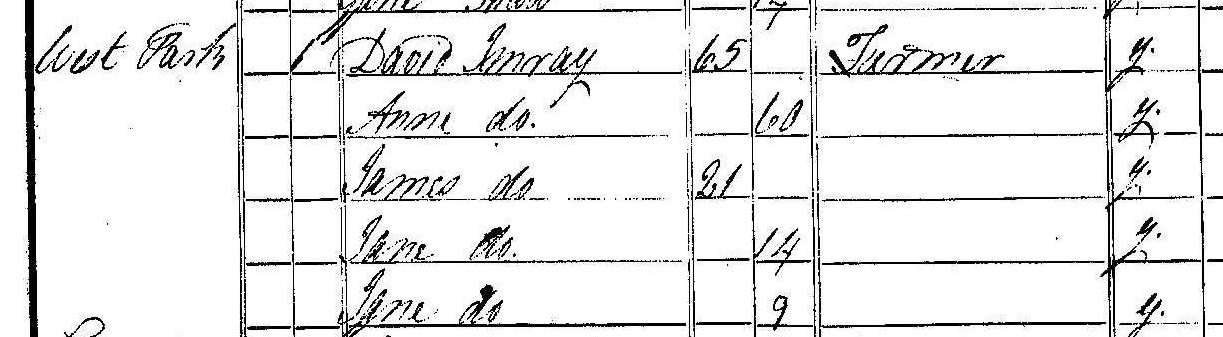 West Park 1 David Imray 65 Farmer y.
Anne do. 60 y.
James do 21 y.
Jane do. 14 y.
Jane do 9 y.